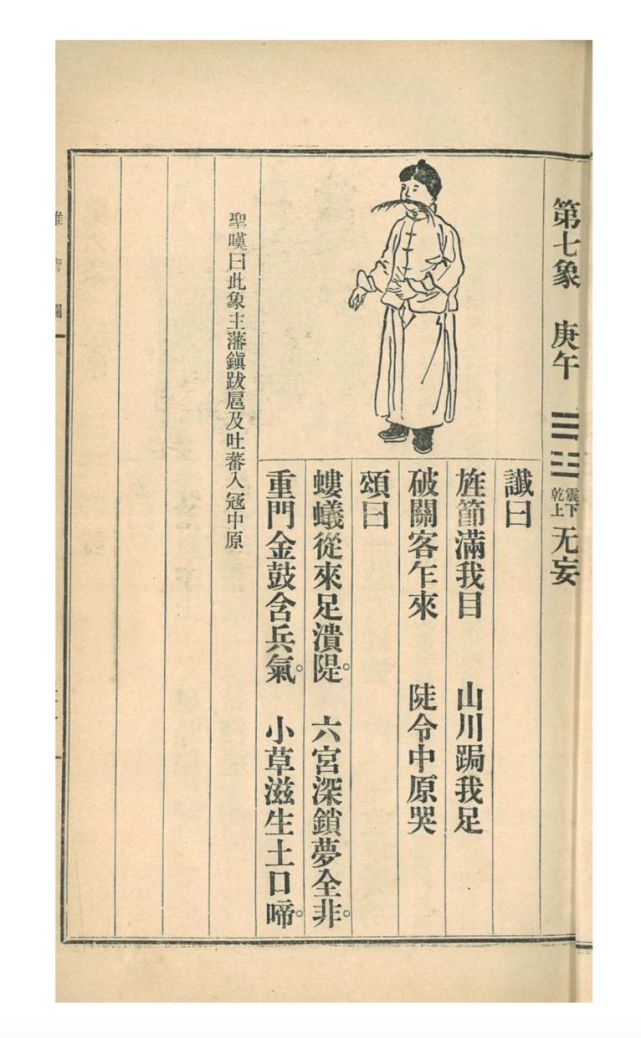 第七象 庚午 ☰☳ 震下 乾上 无妄
讖曰
旌節滿我目 山川跼我足
破關客乍來 陡令中原哭
頌曰
螻蟻從來足潰隄。 六宮深鎖夢全非。
重門金鼓含兵氣。 小草滋生土口啼。
聖嘆曰此象主藩鎮跋扈及吐蕃入冦中原